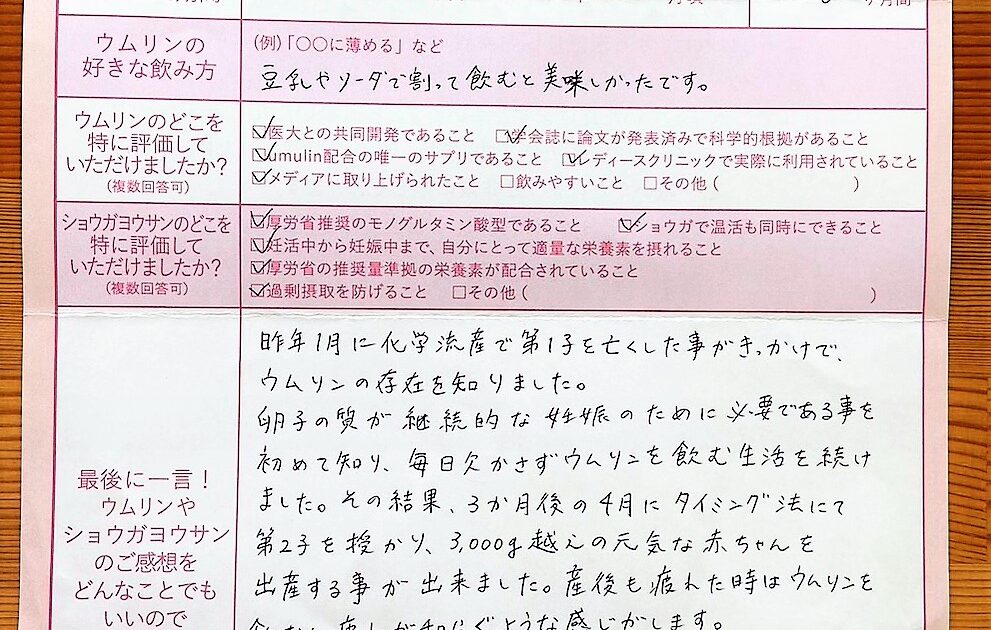 ヶ月間
ウムリンの
好きな飲み方
(例)「〇〇に薄める」など
豆乳やソーダで割って飲むと美味しかったです。
ウムリンのどこを
特に評価して
いただけましたか?
(複数回答可)
☑医大との共同開発であること ☑学会誌に論文が発表済みで科学的根拠があること
☑umulin配合の唯一のサプリであること ☑レディースクリニックで実際に利用されていること
☑メディアに取り上げられたこと □飲みやすいこと □その他 ( )
ショウガヨウサンのどこを
特に評価して
いただけましたか?
(複数回答可)
☑厚労省推奨のモノグルタミン酸型であること ☑ショウガで温活も同時にできること
☑妊活中から妊娠中まで、自分にとって適量な栄養素を摂れること
☑厚労省の推奨量準拠の栄養素が配合されていること
☑過剰摂取を防げること □その他 ( )
最後に一言!
ウムリンや
ショウガヨウサン
のご感想を
どんなことでも
いいので
昨年1月に化学流産で第1子を亡くした事がきっかけで、
ウムリンの存在を知りました。
卵子の質が継続的な妊娠のために必要である事を
初めて知り、毎日欠かさずウムリンを飲む生活を続け
ました。その結果、3か月後の4月にタイミング法にて
第2子を授かり、3,000g越えの元気な赤ちゃんを
出産する事が出来ました。産後も疲れた時はウムリンを
ような感じがします。